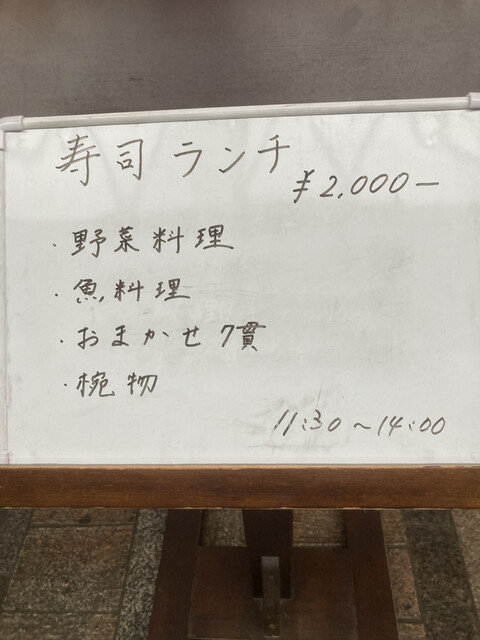 寿司ランチ
¥2,000ー
・野菜料理
・魚料理
・おまかせ7貫
・椀物
11:30～14:00